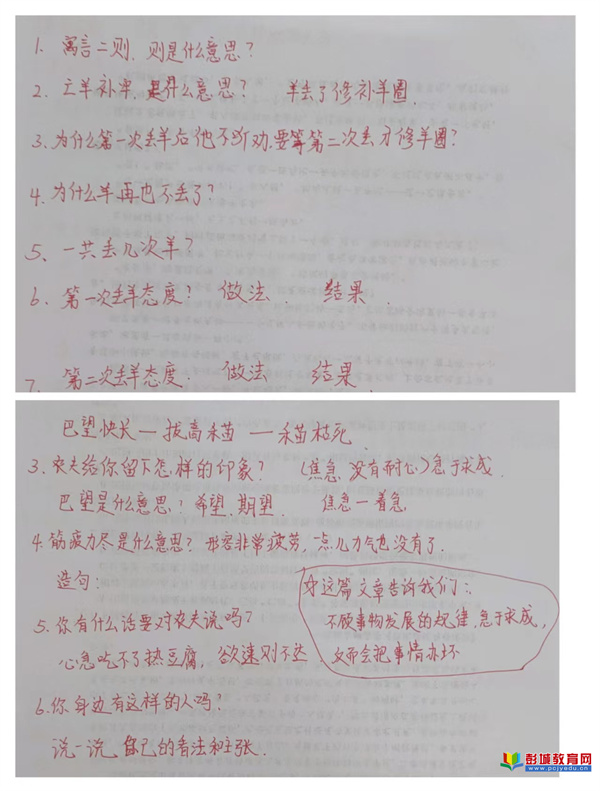 1. 寓言二则、则是什么意思？
2. 亡羊补牢、是什么意思？ 羊丢了修补羊圈.
3. 为什么第一次丢羊后他不听劝.要等第二次丢才修羊圈？
4. 为什么羊再也不丢了？
5、一共丢几次羊？
6、第一次丢羊态度？ 做法、 结果、
7、第二次丢羊态度. 做法 结果.
巴望快长—拔高禾苗—禾苗枯死.
3. 农夫给你留下怎样的印象？ (焦急 没有耐心)急于求成.
巴望是什么意思？希望.期望. 焦急—着急
4. 筋疲力尽是什么意思？形容非常疲劳，一点儿力气也没有了.
造句：
5. 你有什么话要对农夫说吗？
心急吃不了热豆腐，欲速则不达
6. 你身边有这样的人吗？
说一说、自己的看法和主张.
这篇文章告诉我们：
不顾事物发展的规律，急于求成，
反而会把事情办坏
彭城教育网
www.pcjyedu.cn